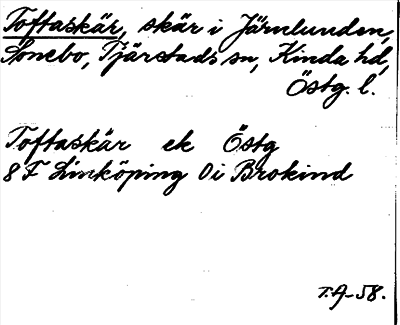 Toftaskär, skär i Järnlunden,
Sonebo, Tjärstads sn, Kinda hd,
Östg. l.
Toftaskär ek Östg
8 F Linköping 0 i Brokind
T.A-58.